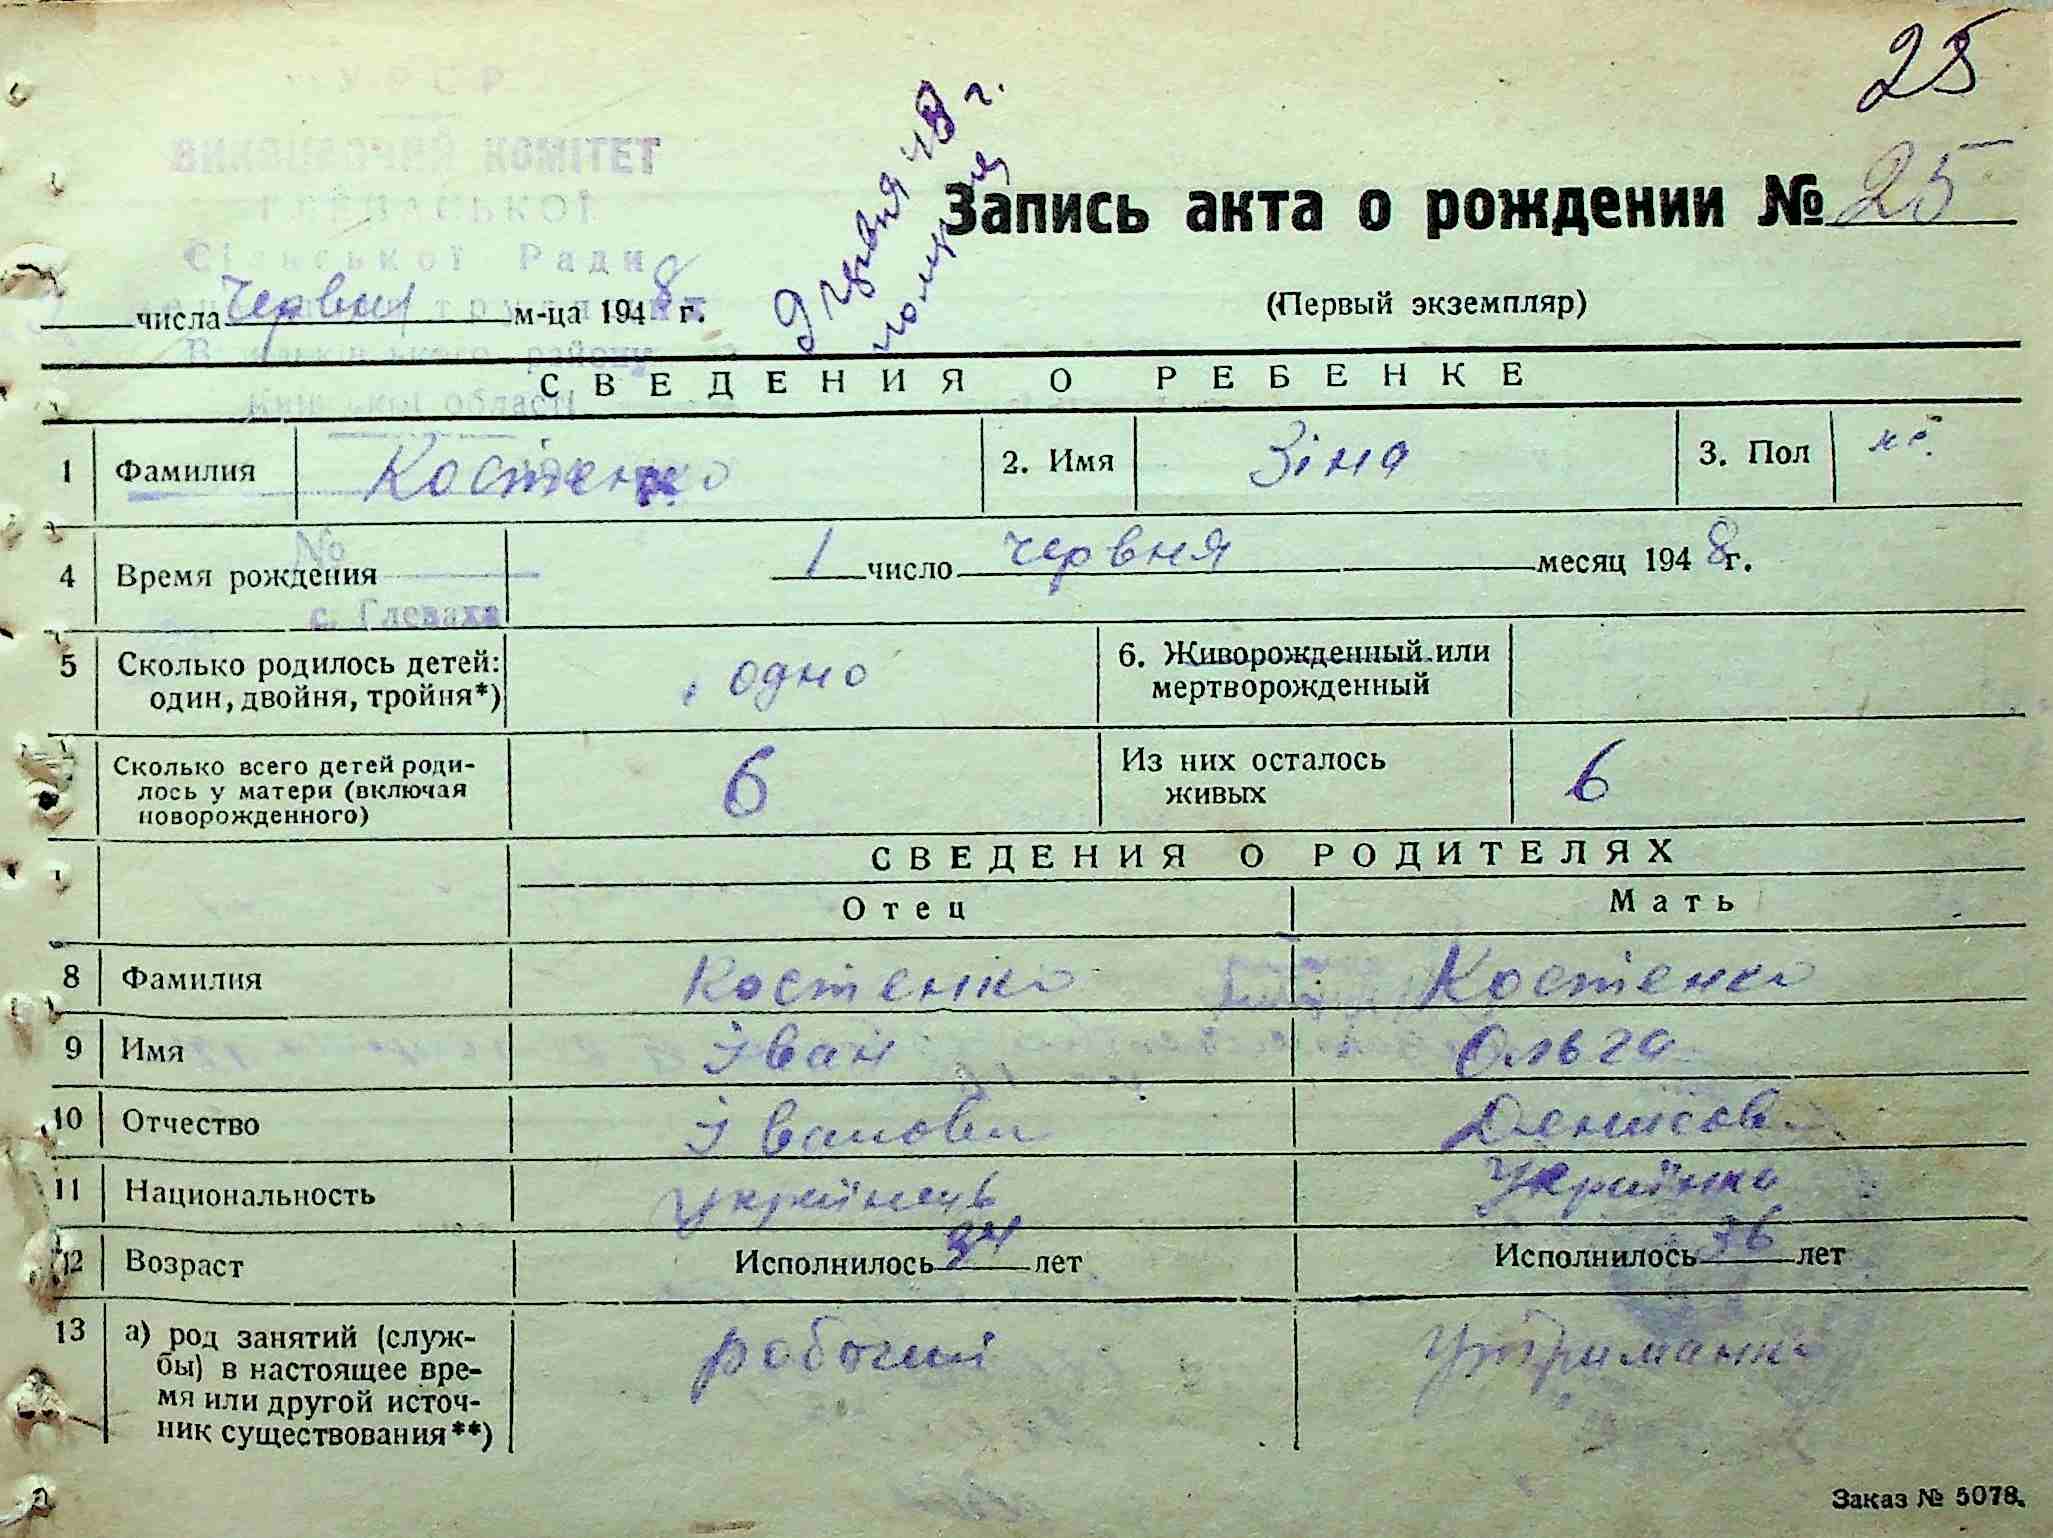 25
УРСР
ВИКОНАВЧИЙ КОМІТЕТ
Сільської Ради
району
області
№
с. Глеваха
Запись акта о рождении № 25
(Первый экземпляр)
числа червня м-ца 1948 г.
СВЕДЕНИЯ О РЕБЕНКЕ
1 Фамилия Костенко 2. Имя Зіна 3. Пол
4 Время рождения 1 число червня месяц 1948 г.
5 Сколько родилось детей: одно 6. Живорожденный или
один, двойня, тройня*) мертворожденный
Сколько всего детей роди- 6 Из них осталось 6
лось у матери (включая живых
новорожденного)
СВЕДЕНИЯ О РОДИТЕЛЯХ
Отец Мать
8 Фамилия Костенко Костенко
9 Имя Іван Ольга
10 Отчество Іванович Денисов
11 Национальность українець Українка
12 Возраст Исполнилось лет Исполнилось 36 лет
13 а) род занятий (служ- робочий утриманка
бы) в настоящее вре-
мя или другой источ-
ник существования**)
Заказ № 5078.